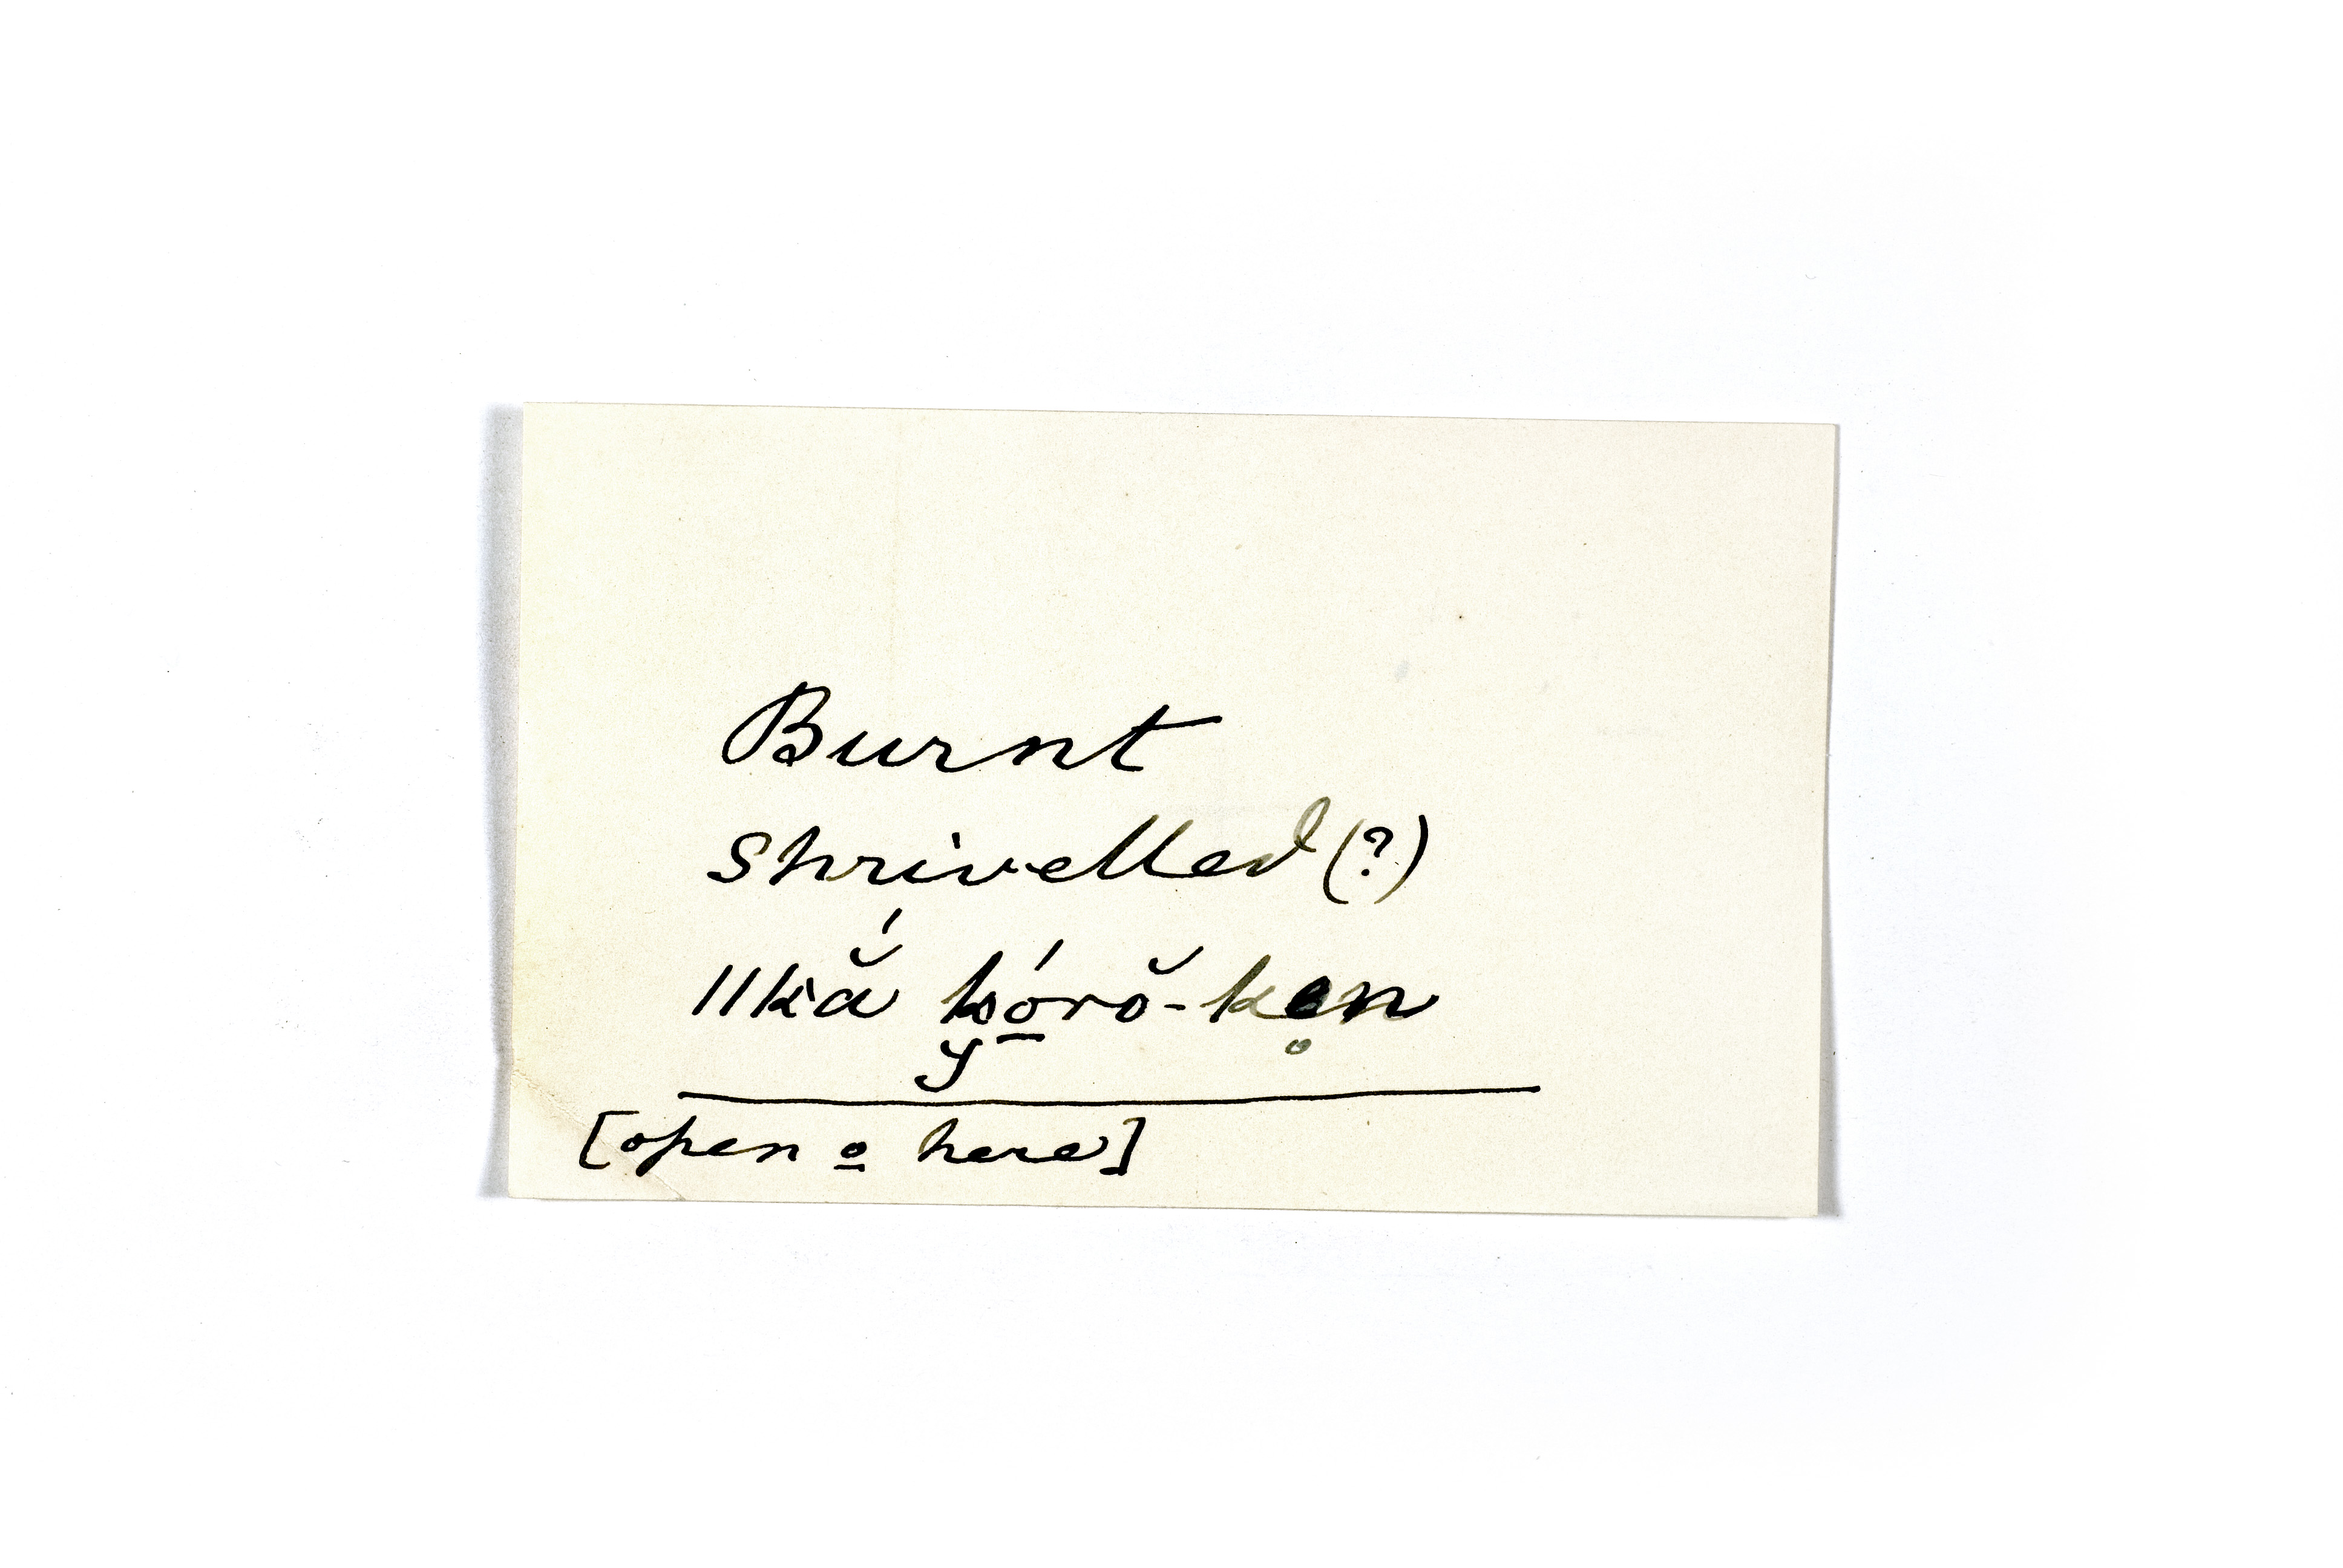 Burnt
shrivelled (?)
ǁkắ k͏̮ó̱rŏ-ke̥n
[open o̲ here]